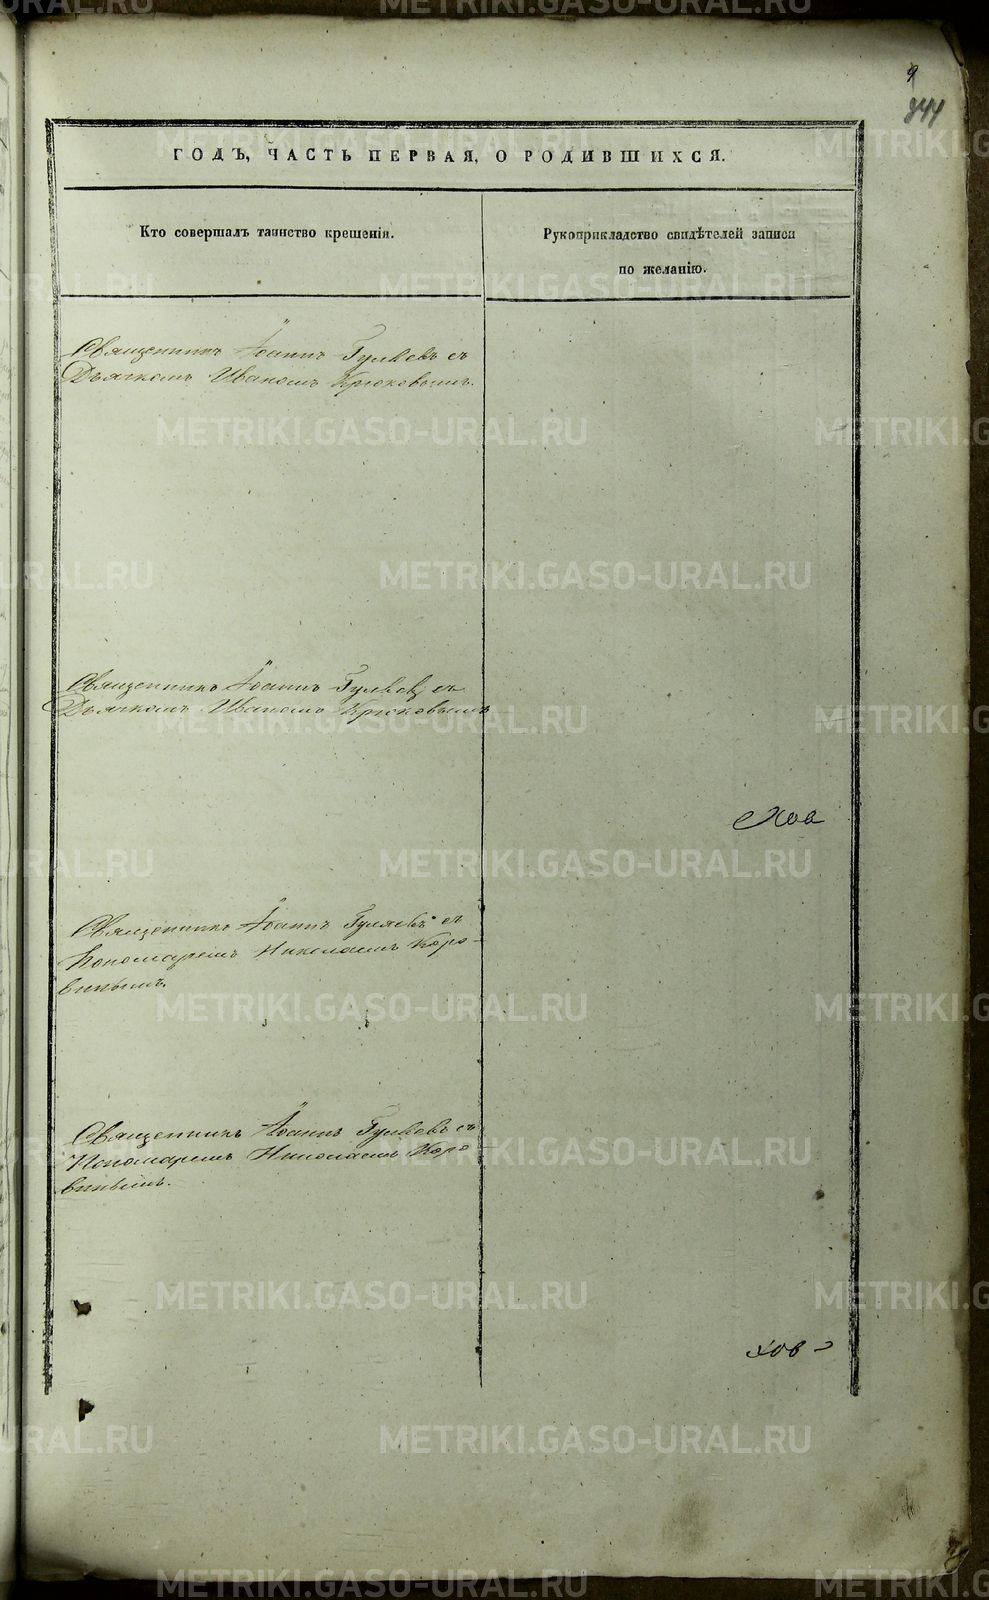 9
344
ГОДЪ, ЧАСТЬ ПЕРВАЯ, О РОДИВШИХСЯ.
Кто совершалъ таинство крещенія.
Рукоприкладство свидѣтелей записи
по желанію.
Священникъ Іоаннъ Гуляевъ съ
Дьячкомъ Иваномъ Крюковымъ.
Священникъ Іоаннъ Гуляевъ съ
Дьячкомъ Иваномъ Крюковымъ
Священникъ Іоаннъ Гуляевъ съ
Пономаремъ Николаемъ Коро-
винымъ.
Священникъ Іоаннъ Гуляевъ съ
Пономаремъ Николаемъ Коро
винымъ.
METRIKI.GASO-URAL.RU